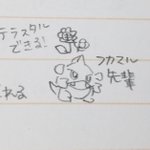 テラスタル
できる!
フカマル
先輩
れる